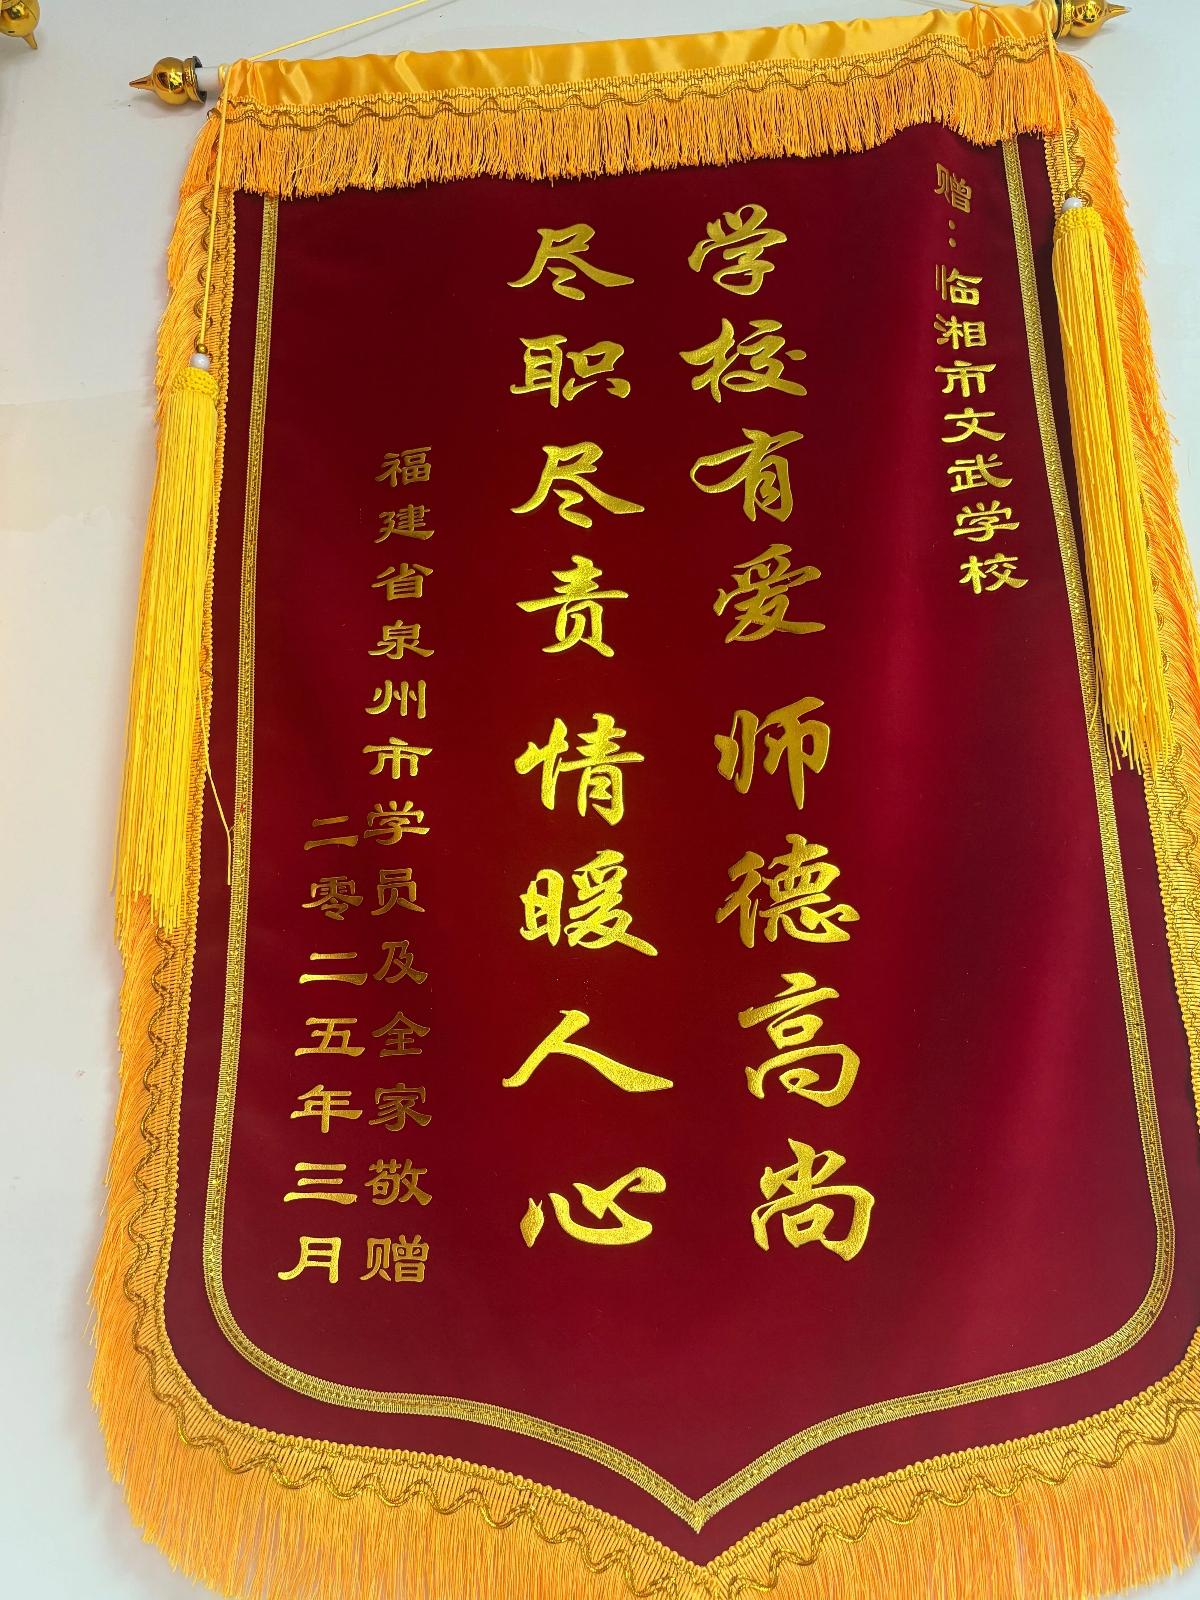 赠：临湘市文武学校
学校有爱 师德高尚
尽职尽责 情暖人心
福建省泉州市学员及全家敬赠
二零二五年三月